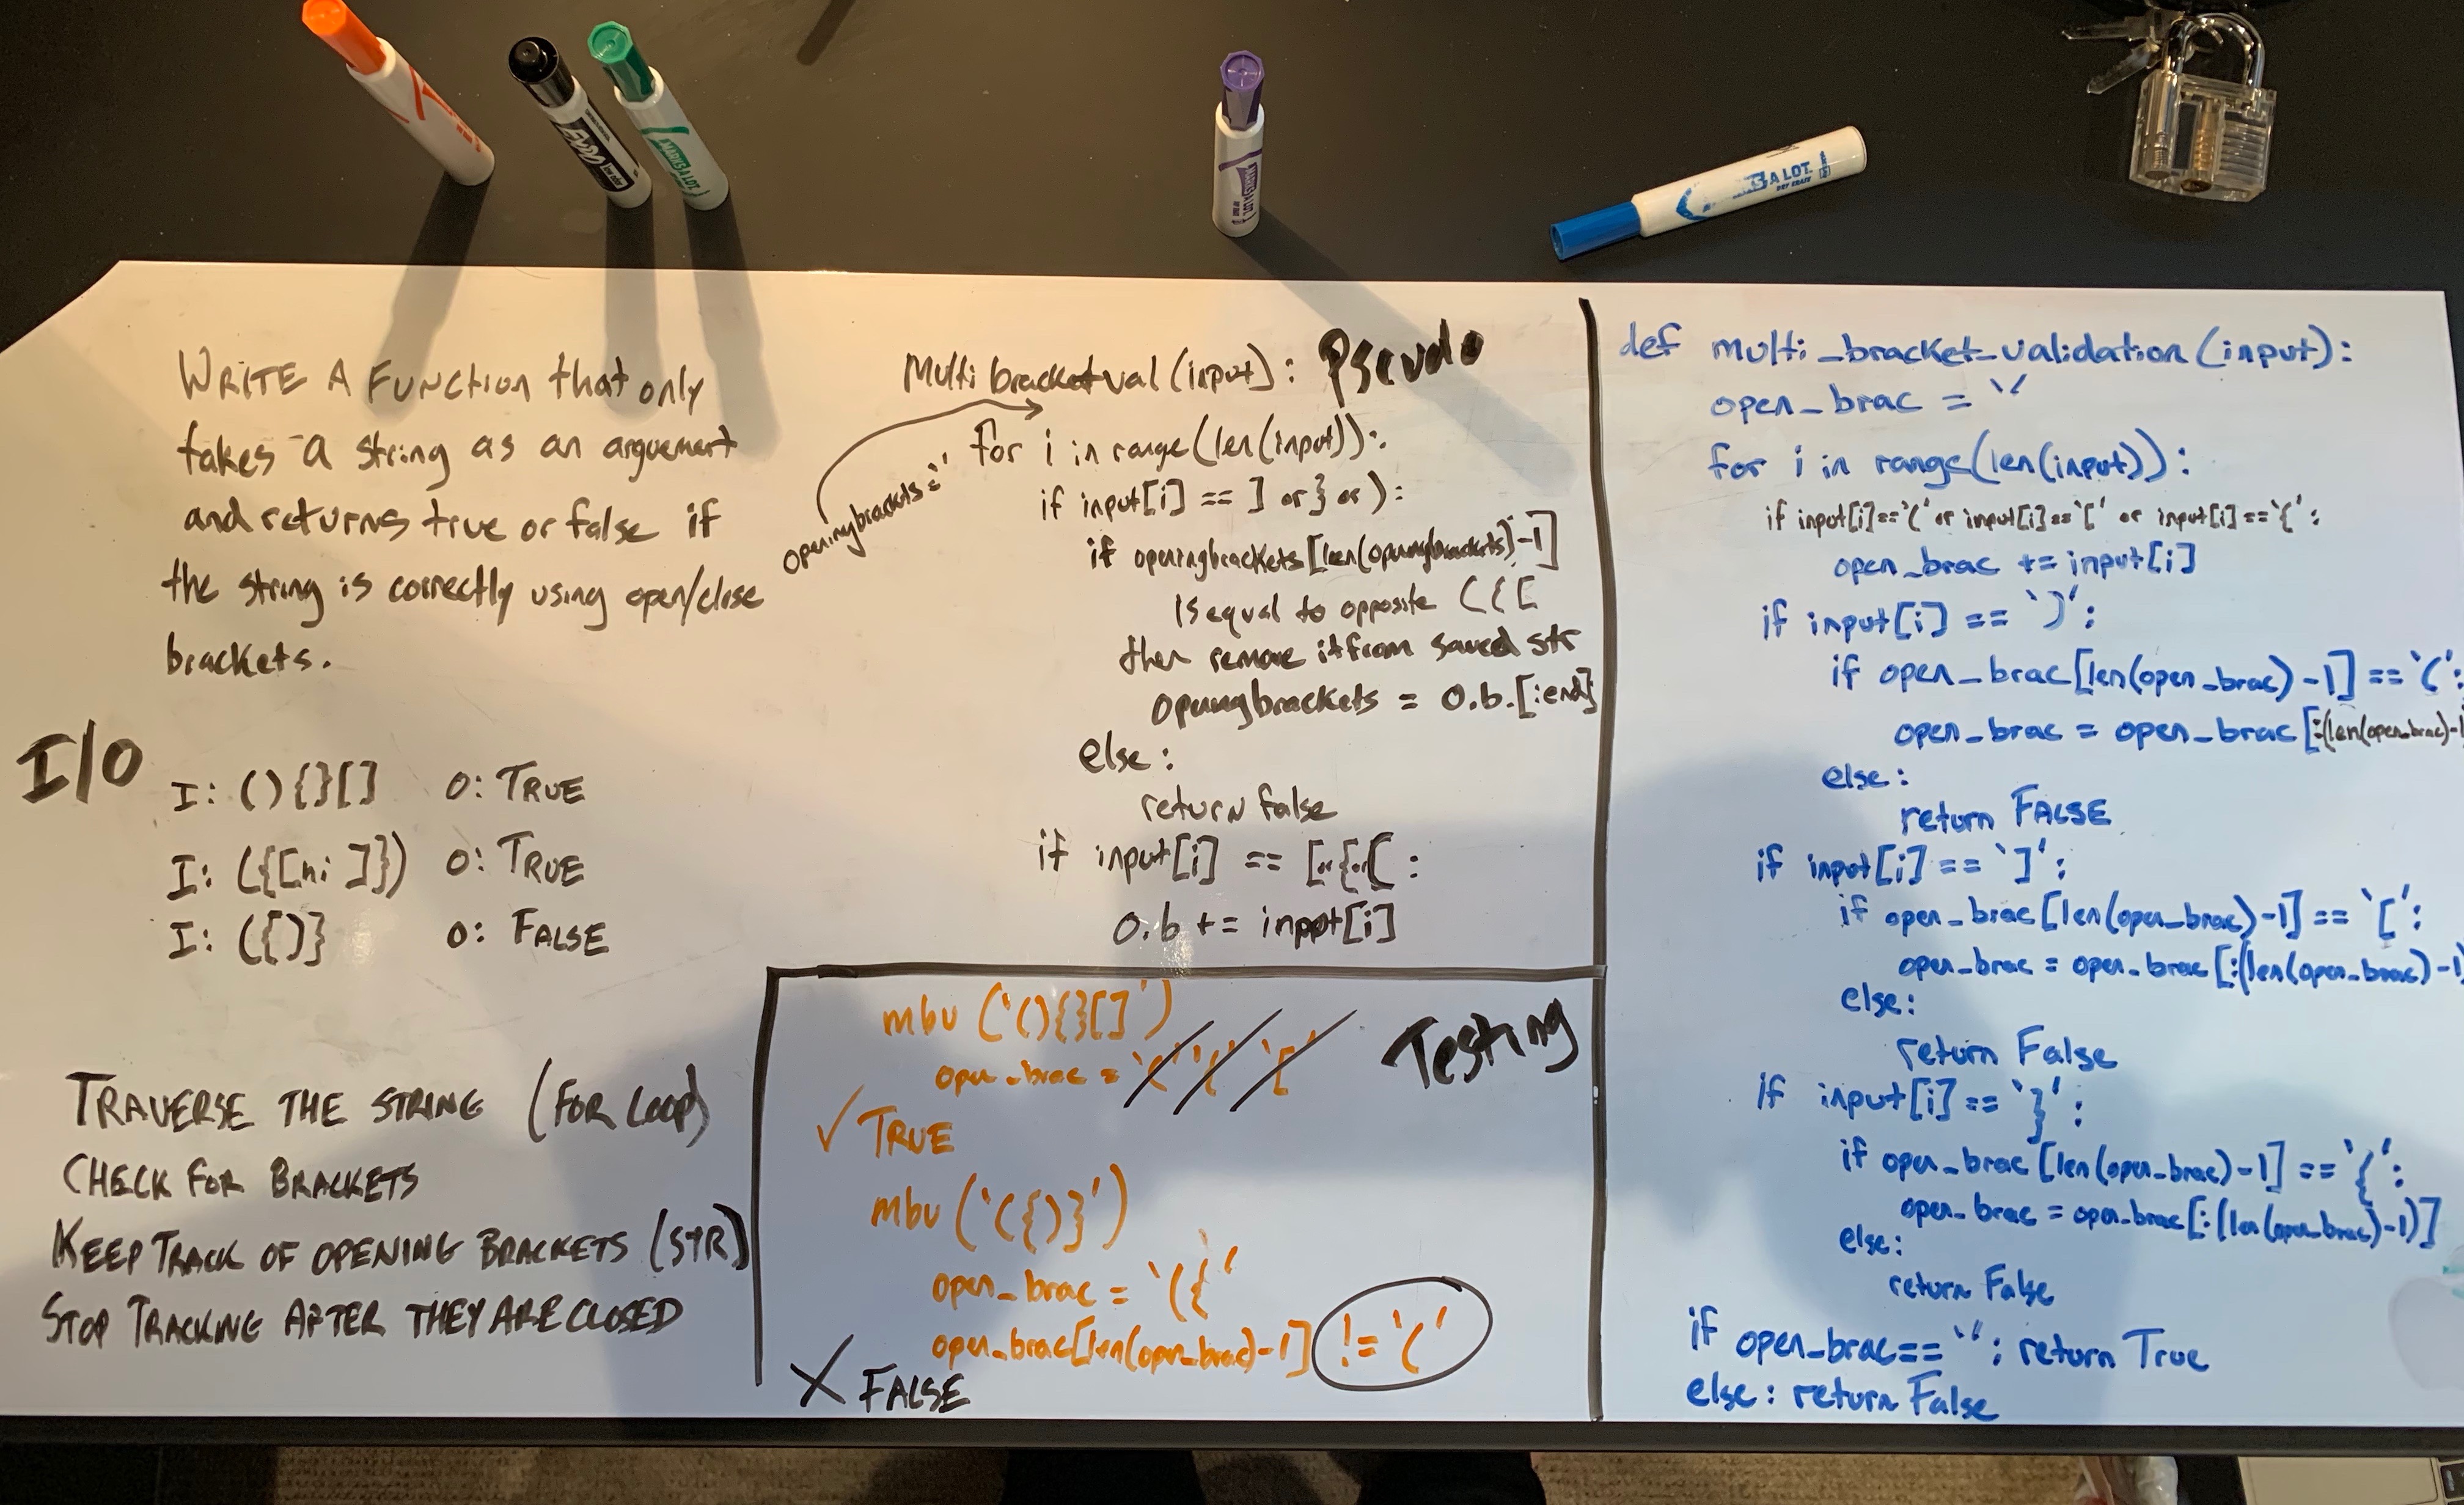 EXPO
MARKS A LOT
A LOT
DRY ERASE
WRITE A FUNCTION that only
takes a string as an arguement
and returns true or false if
the string is correctly using open/close
brackets.
I/O
I: (){}[] O: TRUE
I: ({[hi]}) O: TRUE
I: ([)} O: FALSE
TRAVERSE THE STRING (FOR LOOP)
CHECK FOR BRACKETS
KEEP TRACK OF OPENING BRACKETS (STR)
STOP TRACKING AFTER THEY ARE CLOSED
Multi bracket val (input): Pseudo
openingbrackets = ''
for i in range(len(input)):
if input[i] == ] or } or ):
if openingbrackets[len(openingbrackets)-1]
is equal to opposite ( { [
then remove it from saved str
openingbrackets = O.b.[:end]
else:
return false
if input[i] == [..{..( :
O.b += input[i]
Testing
mbv ('(){}[]')
open_brac = '(' '{' '['
✓ TRUE
mbv ('({)}')
open_brac = '({'
open_brac[len(open_brac)-1] != '('
X FALSE
def multi_bracket_validation(input):
open_brac = ''
for i in range(len(input)):
if input[i]=='(' or input[i]=='[' or input[i]=='{':
open_brac += input[i]
if input[i] == ')':
if open_brac[len(open_brac)-1] == '(':
open_brac = open_brac[:(len(open_brac)-1
else:
return FALSE
if input[i] == ']':
if open_brac[len(open_brac)-1] == '[':
open_brac = open_brac[:(len(open_brac)-1)
else:
return False
if input[i] == '}':
if open_brac[len(open_brac)-1] == '{':
open_brac = open_brac[:(len(open_brac)-1)]
else:
return False
if open_brac == '': return True
else: return False